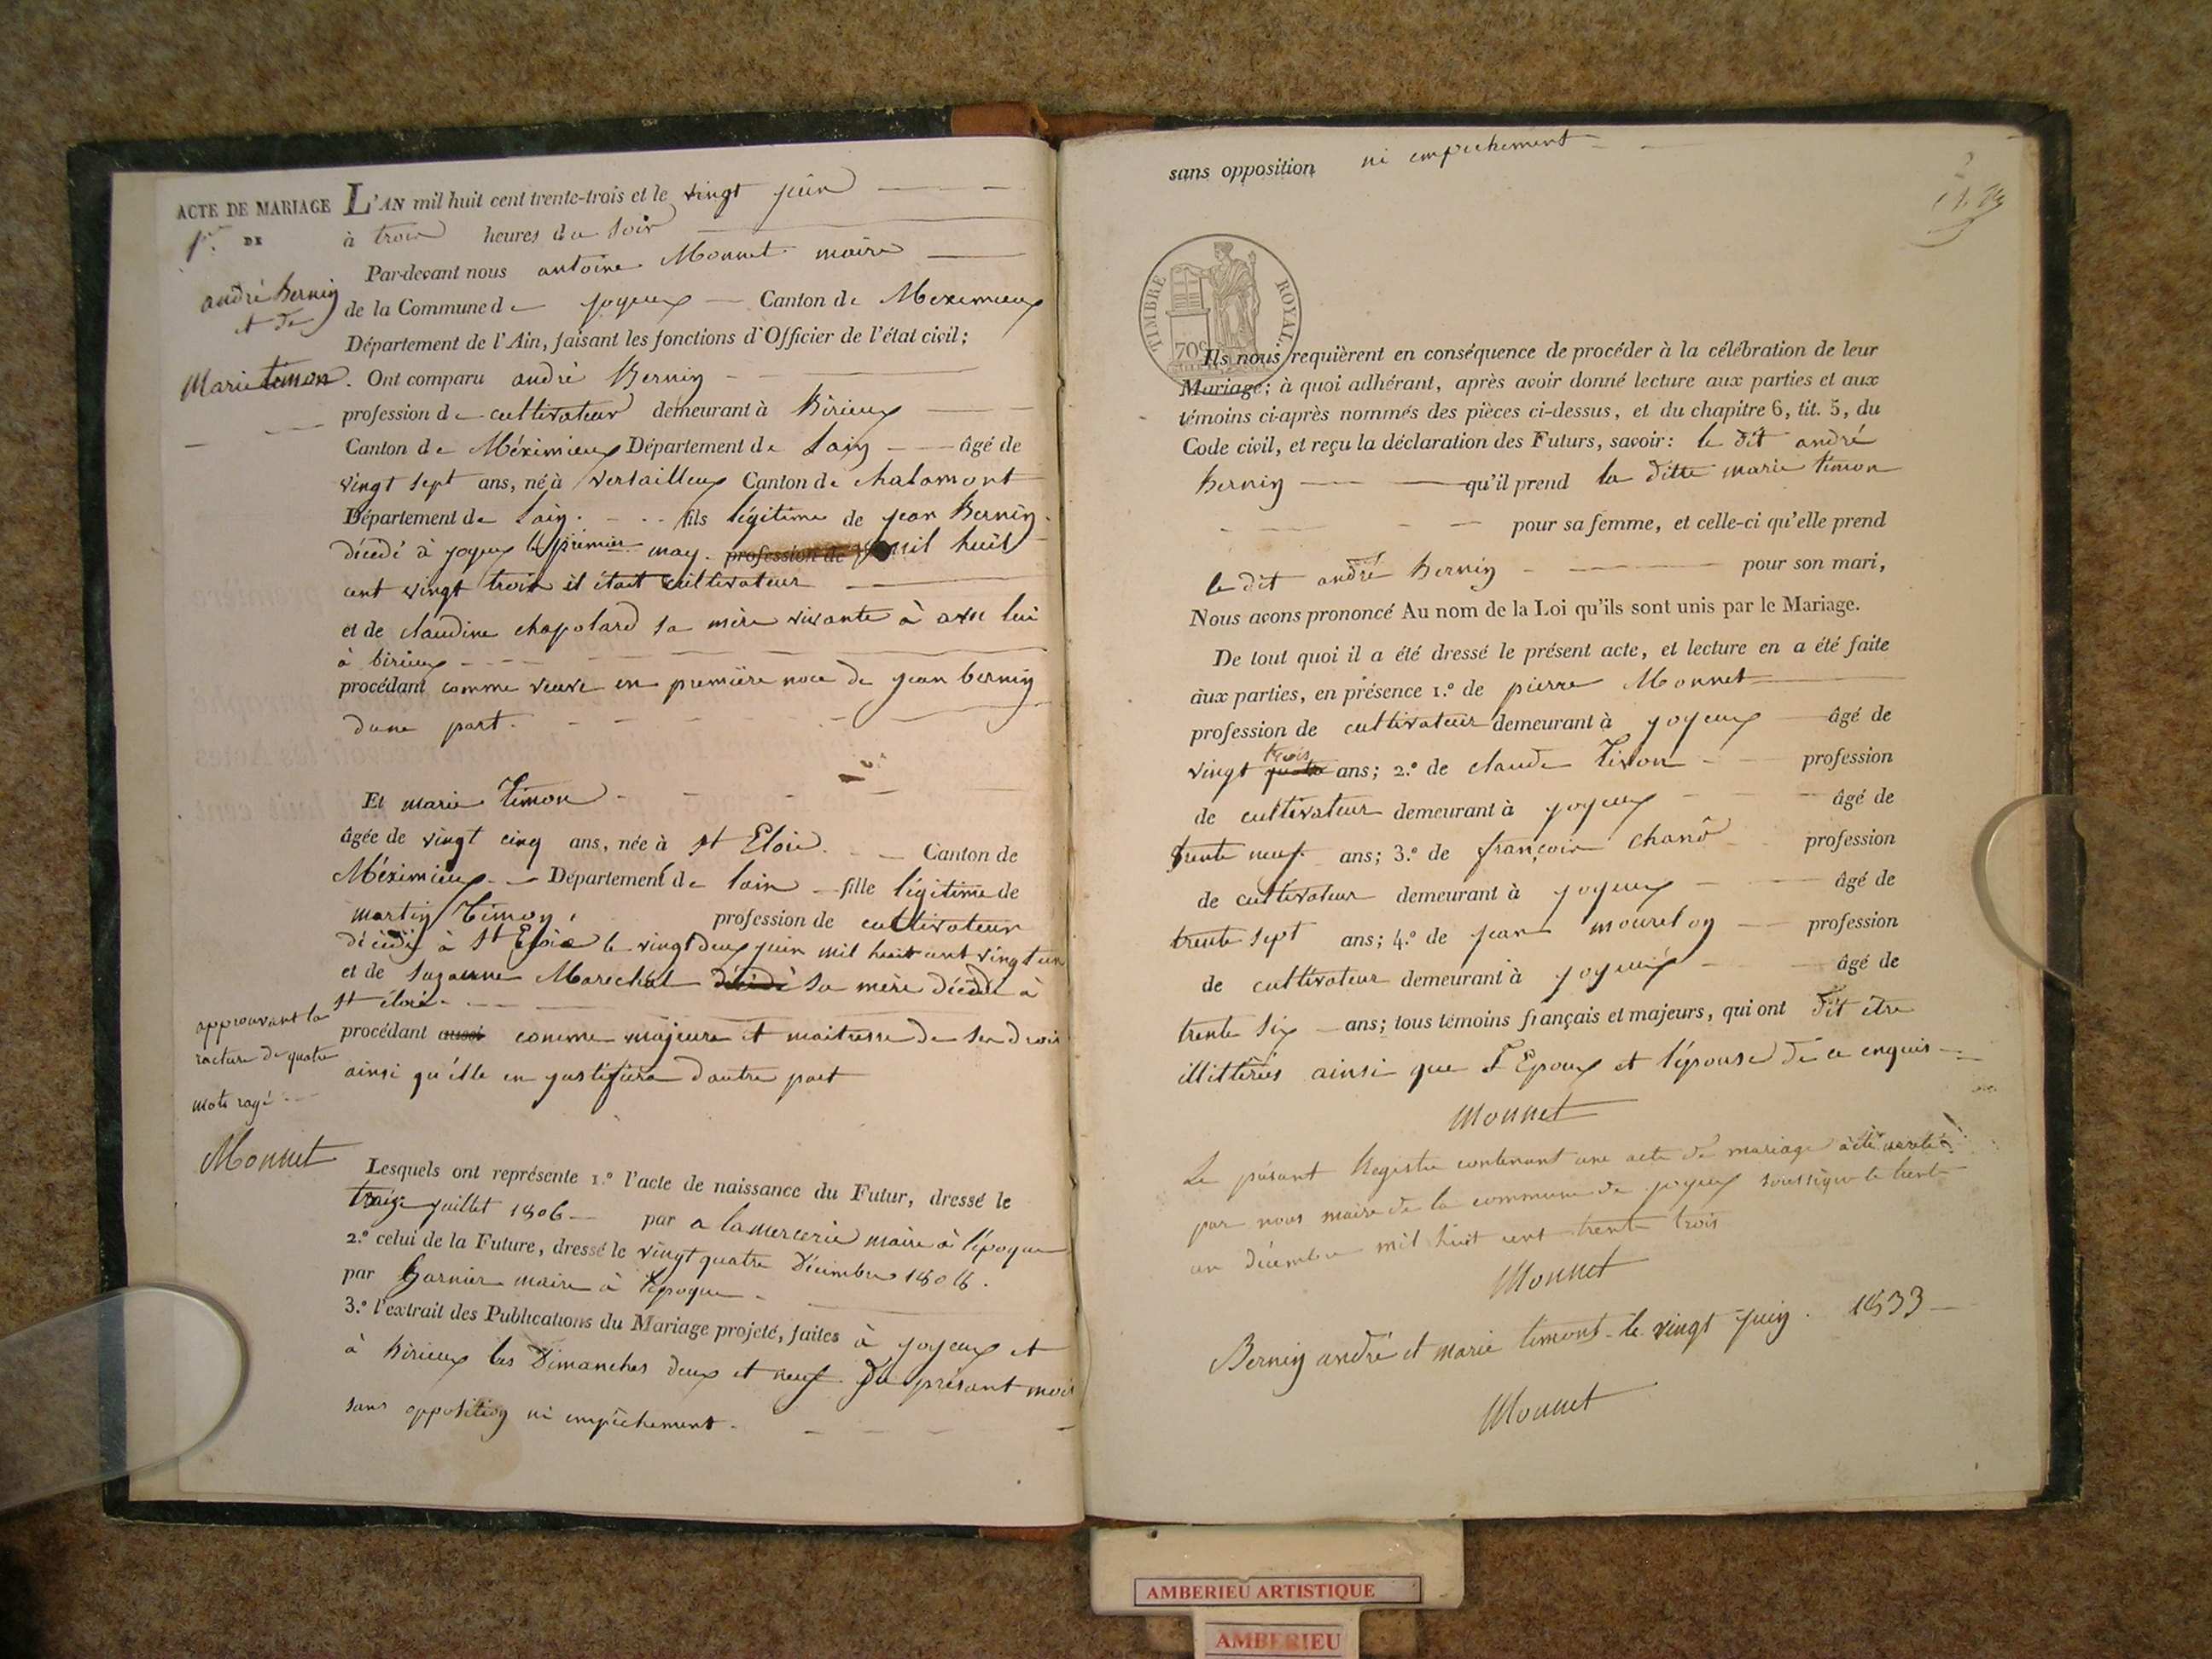 ACTE DE MARIAGE
1er DE
andré bernin
et de
Marie timon
L'AN mil huit cent trente-trois et le vingt juin
à trois heures du soir
Par-devant nous antoine Monnet maire
de la Commune de joyeux Canton de Meximieux
Département de l'Ain, faisant les fonctions d'Officier de l'état civil;
Ont comparu andré Bernin
profession de cultivateur demeurant à Birieux
Canton de Méximieux Département de Lain âgé de
vingt sept ans, né à versailleux Canton de chalamont
Département de Lain fils légitime de jean Bernin
décédé à joyeux le premier may profession de mil huit
cent vingt trois il était cultivateur
et de claudine chapolard sa mère vivante à avec lui
à birieux
procédant comme veuve en première noce de jean bernin
dune part.
Et marie Timon
âgée de vingt cinq ans, née à st Eloie Canton de
Méximieux Département de lain fille légitime de
martin Timon, profession de cultivateur
décédé à St Eloie le vingt deux juin mil huit cent vingt un
et de suzanne Marechal décédé sa mère décédée à
st éloie
procédant aussi comme majeure et maitresse de ses droits
ainsi qu'elle en justifiera dautre part
approuvant la
racture de quatre
mots rayé
Monnet
Lesquels ont représente 1.º l'acte de naissance du Futur, dressé le
traize juillet 1806 par a lamercerie maire à l'époque
2.º celui de la Future, dressé le vingt quatre Décembre 1808.
par Garnier maire à l'époque
3.º l'extrait des Publications du Mariage projeté, faites à joyeux et
à Birieux les Dimanches deux et neuf du présant mois
sans opposition ni empêchement.
sans opposition ni empêchement
TIMBRE ROYAL.
70c
Ils nous requièrent en conséquence de procéder à la célébration de leur
Mariage; à quoi adhérant, après avoir donné lecture aux parties et aux
témoins ci-après nommés des pièces ci-dessus, et du chapitre 6, tit. 5, du
Code civil, et reçu la déclaration des Futurs, savoir: le dit andré
bernin qu'il prend la ditte marie timon
pour sa femme, et celle-ci qu'elle prend
le dit andré bernin pour son mari,
Nous avons prononcé Au nom de la Loi qu'ils sont unis par le Mariage.
De tout quoi il a été dressé le présent acte, et lecture en a été faite
aux parties, en présence 1.º de pierre Monnet
profession de cultivateur demeurant à joyeux âgé de
trois
vingt quatre ans; 2.º de claude Tixon profession
de cultivateur demeurant à joyeux âgé de
trente neuf ans; 3.º de françois chanô profession
de cultivateur demeurant à joyeux âgé de
trente sept ans; 4.º de jean mourelon profession
de cultivateur demeurant à joyeux âgé de
trente six ans; tous témoins français et majeurs, qui ont dit être
illittérés ainsi que l'Epoux et l'épouse de ce enquis
Monnet
Le présant Registre contenant une acte de mariage à été arrêté
par nous maire de la commune de joyeux soussigné le trente
un décembre mil huit cent trente trois
Monnet
Bernin andré et marie timont le vingt juin 1833
Monnet
AMBERIEU ARTISTIQUE
AMBERIEU